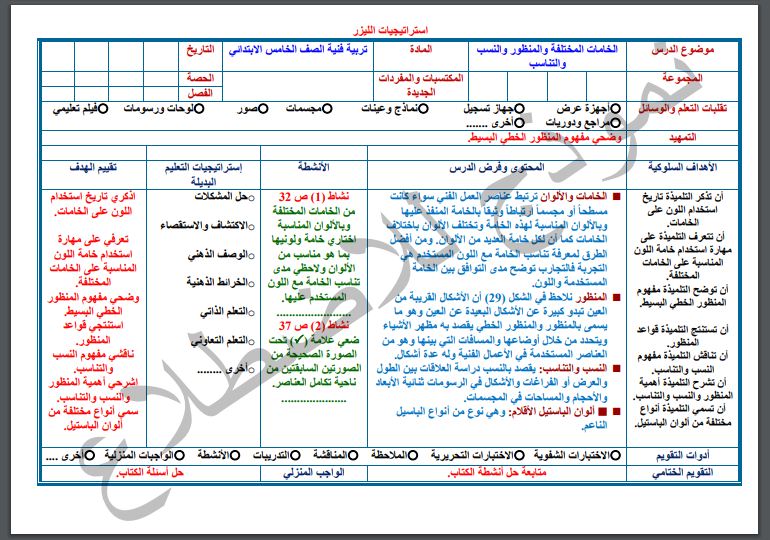 استراتيجيات الليزر
موضوع الدرس
الخامات المختلفة والمنظور والنسب
والتناسب
المادة
تربية فنية الصف الخامس الابتدائي
التاريخ
المجموعة
المكتسبات والمفردات
الجديدة
الحصة
الفصل
تقليات التعلم والوسائل
أجهزة عرض
جهاز تسجيل
نماذج وعينات
مجسمات
صور
لوحات ورسومات
فيلم تعليمي
مراجع ودوريات
أخرى .......
التمهيد
وضحي مفهوم المنظور الخطي البسيط.
الأهداف السلوكية
المحتوى وفرض الدرس
الأنشطة
إستراتيجيات التعليم
البديلة
تقييم الهدف
أن تذكر التلميذة تاريخ
استخدام اللون على
الخامات.
أن تتعرف التلميذة على
مهارة استخدام خامة اللون
المناسبة على الخامات
المختلفة.
أن توضح التلميذة مفهوم
المنظور الخطي البسيط.
أن تستنتج التلميذة قواعد
المنظور.
أن تناقش التلميذة مفهوم
النسب والتناسب.
أن تشرح التلميذة أهمية
المنظور والنسب والتناسب.
أن تسمي التلميذة أنواع
مختلفة من ألوان الباستيل.
الخامات والألوان ترتبط عناصر العمل الفني سواء كانت
مسطحاً أو مجسماً ارتباطاً وثيقاً بالخامة المنفذ عليها
وبالألوان المناسبة لهذه الخامة وتختلف الألوان باختلاف
الخامات كما أن لكل خامة العديد من الألوان. ومن أفضل
الطرق لمعرفة تناسب الخامة مع اللون المستخدم هي
التجربة فالتجارب توضح مدى التوافق بين الخامة
المستخدمة واللون.
المنظور نلاحظ في الشكل (29) أن الأشكال القريبة من
العين تبدو كبيرة عن الأشكال البعيدة عن العين وهو ما
يسمى بالمنظور والمنظور الخطي يقصد به مظهر الأشياء
ويتحدد من خلال أوضاعها والمسافات التي بينها وهو من
العناصر المستخدمة في الأعمال الفنية وله عدة أشكال.
النسب والتناسب: يقصد بالنسب دراسة العلاقات بين الطول
والعرض أو الفراغات والأشكال في الرسومات ثنائية الأبعاد
والأحجام والمساحات في المجسمات.
ألوان الباستيل الأقلام: وهي نوع من أنواع الباسيل
الناعم.
نشاط (1) ص 32
من الخامات المختلفة
وبالألوان المناسبة
اختاري خامة ولونيها
بما هو مناسب من
الألوان ولاحظي مدى
تناسب الخامة مع اللون
المستخدم عليها.
........................
نشاط (2) ص 37
ضعي علامة (✓) تحت
الصورة الصحيحة من
الصورتين السابقتين من
ناحية تكامل العناصر.
.....................
حل المشكلات
الاكتشاف والاستقصاء
الوصف الذهني
الخرائط الذهنية
التعلم الذاتي
التعلم التعاوني
أخرى .........
اذكري تاريخ استخدام
اللون على الخامات.
تعرفي على مهارة
استخدام خامة اللون
المناسبة على الخامات
المختلفة.
وضحي مفهوم المنظور
الخطي البسيط.
استنتجي قواعد
المنظور.
ناقشي مفهوم النسب
والتناسب.
اشرحي أهمية المنظور
والنسب والتناسب.
سمي أنواع مختلفة من
ألوان الباستيل.
أدوات التقويم
الاختبارات الشفوية
الاختبارات التحريرية
الملاحظة
المناقشة
التدريبات
الأنشطة
الواجبات المنزلية
أخرى ....
التقويم الختامي
متابعة حل أنشطة الكتاب.
الواجب المنزلي
حل أسئلة الكتاب.
نموذج للاطلاع